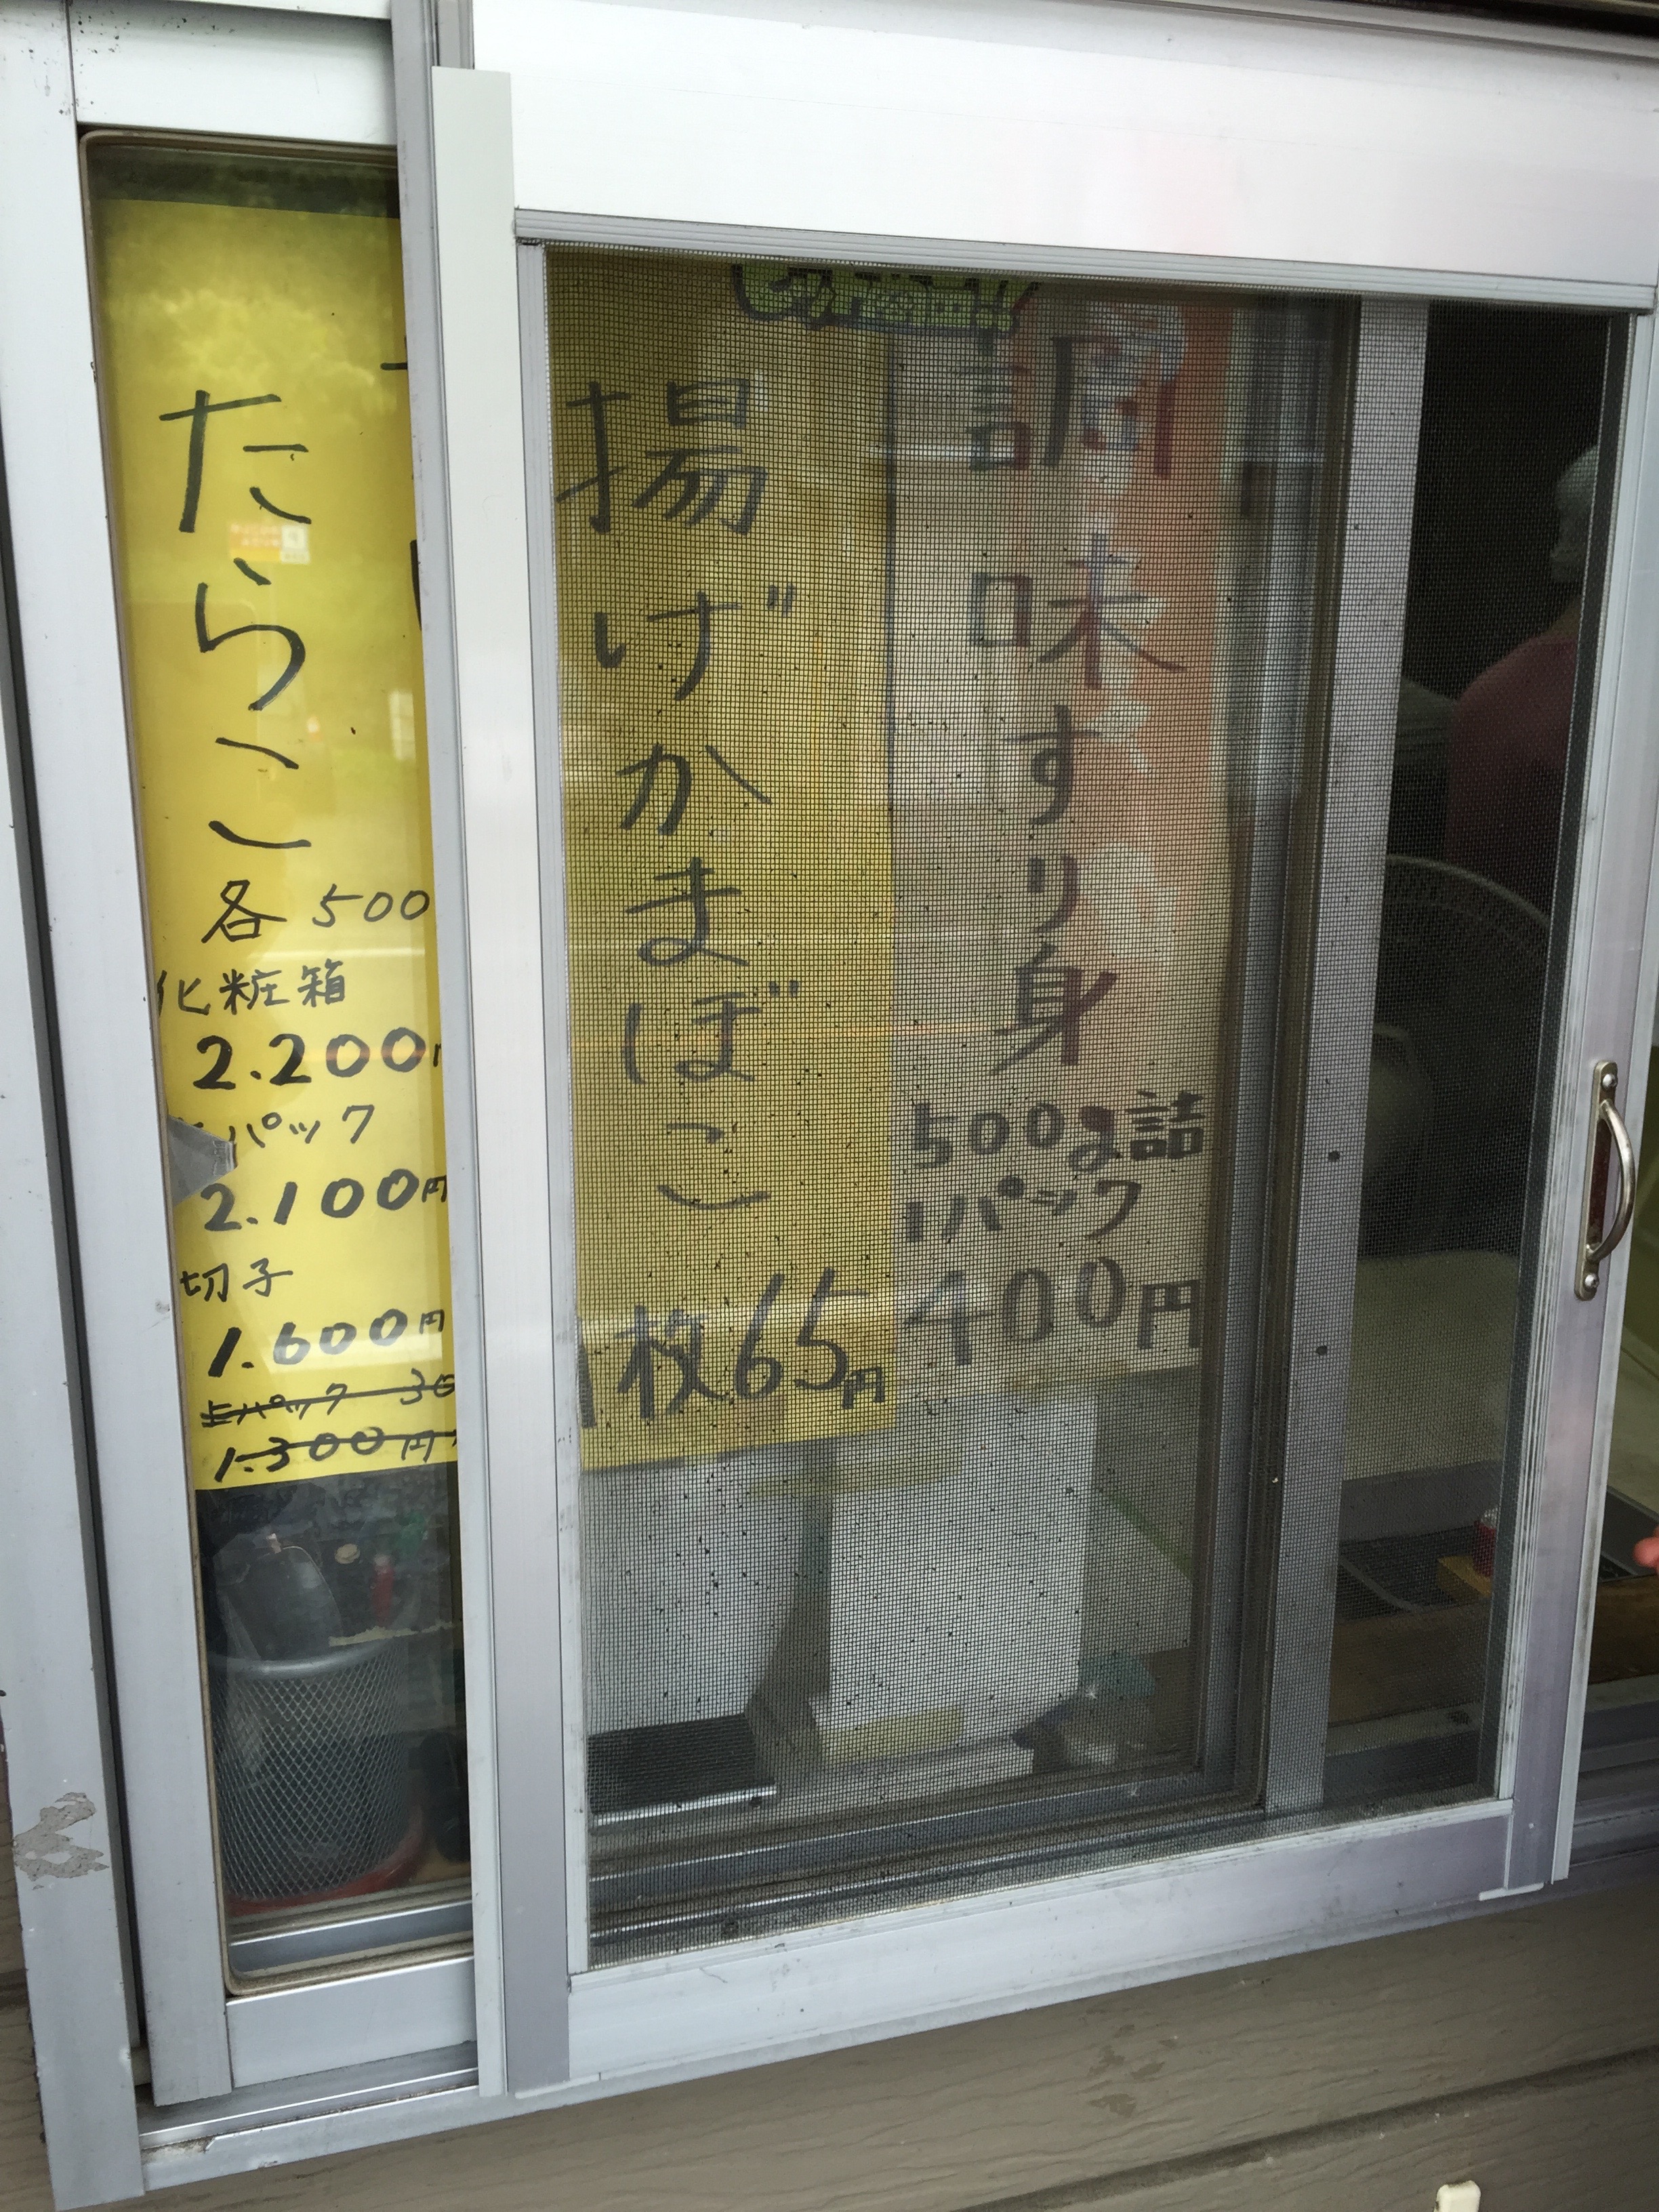 調味すり身
500g詰
1パック
400円
揚げかまぼこ
1枚65円
たらこ
各 500
化粧箱
2.200
パック
2.100円
切子
1.600円
上パック 30
1.300円